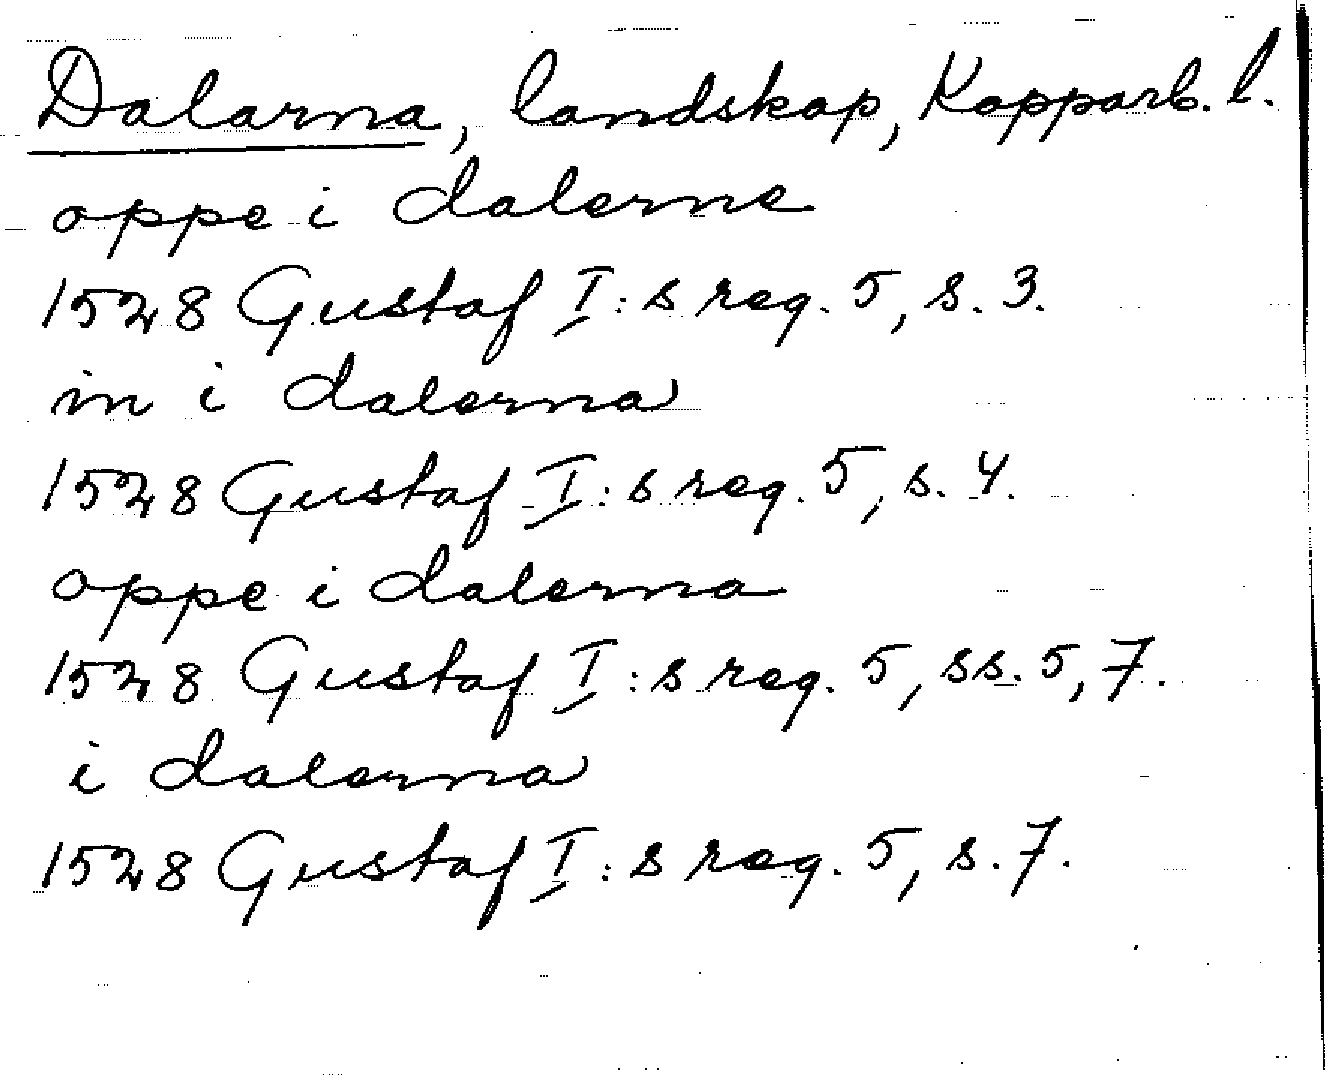 Dalarna, landskap, Kopparb. l.
oppe i dalerne
1528 Gustaf I: s reg. 5, s. 3.
in i dalerna
1528 Gustaf I: s reg. 5, s. 4.
oppe i dalerna
1528 Gustaf I: s reg. 5, ss. 5, 7.
i dalerna
1528 Gustaf I: s reg. 5, s. 7.